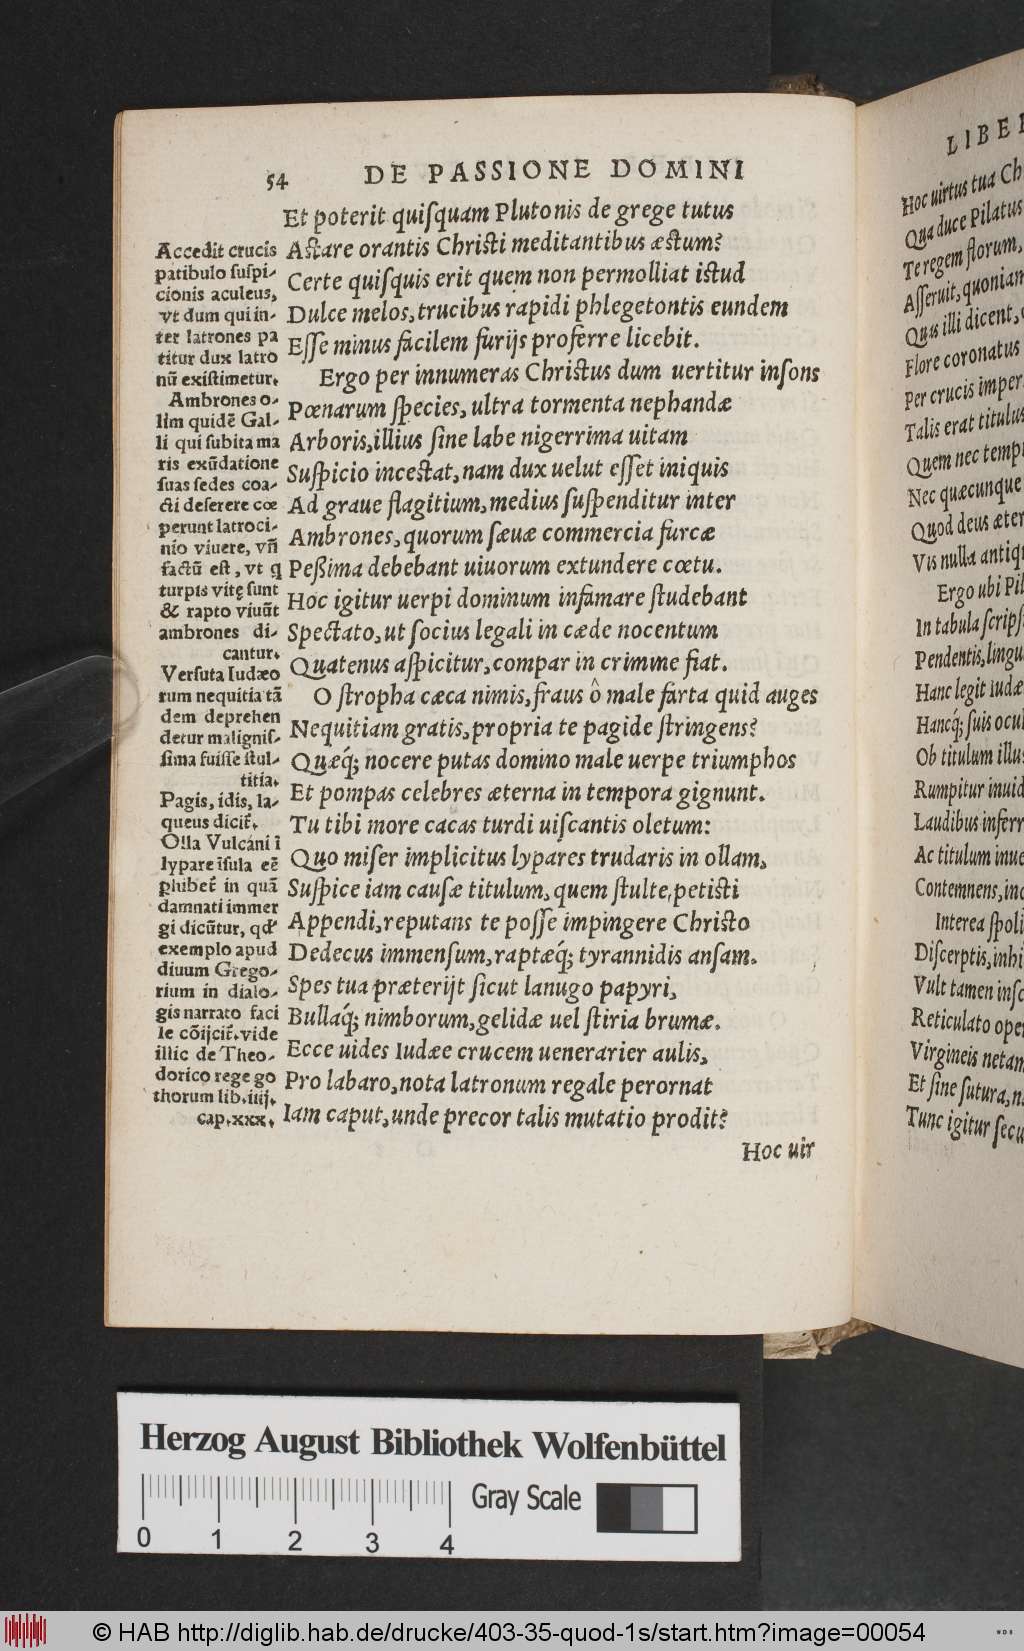 54 DE PASSIONE DOMINI
Et poterit quiſquam Plutonis de grege tutus
Aſtare orantis Chriſti meditantibus æſtum?
Certe quiſquis erit quem non permolliat iſtud
Dulce melos, trucibus rapidi phlegetontis eundem
Eſſe minus facilem furijs proferre licebit.
Ergo per innumeras Chriſtus dum uertitur inſons
Pœnarum ſpecies, ultra tormenta nephandæ
Arboris, illius ſine labe nigerrima uitam
Suſpicio inceſtat, nam dux uelut eſſet iniquis
Ad graue flagitium, medius ſuſpenditur inter
Ambrones, quorum ſæuæ commercia furcæ
Peßima debebant uiuorum extundere cœtu.
Hoc igitur uerpi dominum infamare ſtudebant
Spectato, ut ſocius legali in cæde nocentum
Quatenus aſpicitur, compar in crimine fiat.
O ſtropha cæca nimis, fraus ô male farta quid auges
Nequitiam gratis, propria te pagide ſtringens?
Quæq́; nocere putas domino male uerpe triumphos
Et pompas celebres æterna in tempora gignunt.
Tu tibi more cacas turdi uiſcantis oletum:
Quo miſer implicitus lypares trudaris in ollam,
Suſpice iam cauſæ titulum, quem ſtulte, petiſti
Appendi, reputans te poſſe impingere Chriſto
Dedecus immenſum, raptæq́; tyrannidis anſam.
Spes tua præterijt ſicut lanugo papyri,
Bullaq́; nimborum, gelidæ uel ſtiria brumæ.
Ecce uides Iudæe crucem uenerarier aulis,
Pro labaro, nota latronum regale perornat
Iam caput, unde precor talis mutatio prodit?
Hoc uir
Accedit crucis
patibulo ſuſpi-
cionis aculeus,
vt dum qui in-
ter latrones pa
titur dux latro
nũ exiſtimetur.
Ambrones o-
lim quidẽ Gal-
li qui ſubita ma
ris exũdatione
ſuas ſedes coa-
cti deſerere cœ
perunt latroci-
nio viuere, vñ
factũ eſt, vt q
turpis vitę ſunt
& rapto viuũt
ambrones di-
cantur.
Verſuta Iudæo
rum nequitia tã
dem deprehen
detur maligniſ-
ſima fuiſſe ſtul-
titia.
Pagis, idis, la-
queus dicit̃.
Olla Vulcáni ĩ
lypare ĩſula eẽ
phibet̃ in quã
damnati immer
gi dicũtur, qd'
exemplo apud
diuum Grego-
rium in dialo-
gis narrato faci
le cõijcit̃. vide
illic de Theo-
dorico rege go
thorum lib. iiij.
cap. xxx.
LIBER
Hoc uirtus tua
Qua duce Pilatus
Te regem florum,
Aſſeruit, quoniam
Quas illi dicent,
Flore coronatus
Per crucis
Talis erat titulus
Quem nec
Nec quæcunque
Quod deus
Vis nulla
Ergo ubi
In tabula
Pendentis,
Hanc legit
Hancq́; ſuis
Ob titulum
Rumpitur
Laudibus
Ac titulum
Contemnens,
Interea
Diſcerptis,
Vult tamen
Reticulato
Virgineis
Et ſine ſutura,
Tunc igitur
Herzog August Bibliothek Wolfenbüttel
Gray Scale
0 1 2 3 4
© HAB http://diglib.hab.de/drucke/403-35-quod-1s/start.htm?image=00054